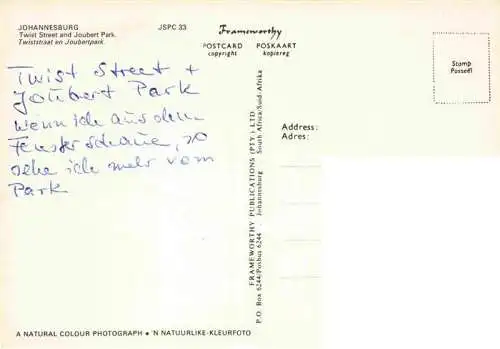 JOHANNESBURG
Twist Street and Joubert Park.
Twiststraat en Joubertpark.
JSPC 33
Frameworthy
POSTCARD POSKAART
copyright kopiereg
Stamp
Posseël
Twist Street +
Joubert Park
wenn ich aus dem
Fenster schaue, so
sehe ich mehr vom
Park
Address:
Adres:
FRAMEWORTHY PUBLICATIONS (PTY.) LTD
P.O. Box 6244/Posbus 6244 Johannesburg South Africa/Suid-Afrika
A NATURAL COLOUR PHOTOGRAPH • 'N NATUURLIKE-KLEURFOTO